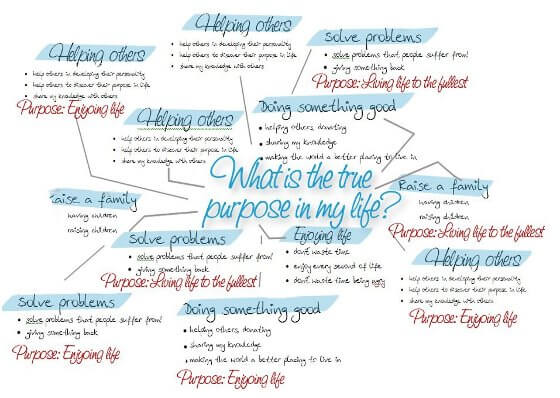 Helping others
help others in developing their personality
help others to discover their purpose in life
share my knowledge with others
Solve problems
solve problems that people suffer from!
giving something back
Purpose: Living life to the fullest
Helping others
help others in developing their personality
help others to discover their purpose in life
share my knowledge with others
Purpose: Enjoying life
Helping others
help others in developing their personality
help others to discover their purpose in life
share my knowledge with others
Doing something good
helping others, donating
sharing my knowledge
making the world a better placing to live in
What is the true
purpose in my life?
Raise a family
having children
raising children
Raise a family
having children
raising children
Purpose: Living life to the fullest
Solve problems
solve problems that people suffer from!
giving something back
Purpose: Living life to the fullest
Enjoying life
don't waste time
enjoy every second of life
don't waste time being ugly
Helping others
help others in developing their personality
help others to discover their purpose in life
share my knowledge with others
Purpose: Enjoying life
Solve problems
solve problems that people suffer from!
giving something back
Purpose: Enjoying life
Doing something good
helping others, donating
sharing my knowledge
making the world a better placing to live in
Purpose: Enjoying life